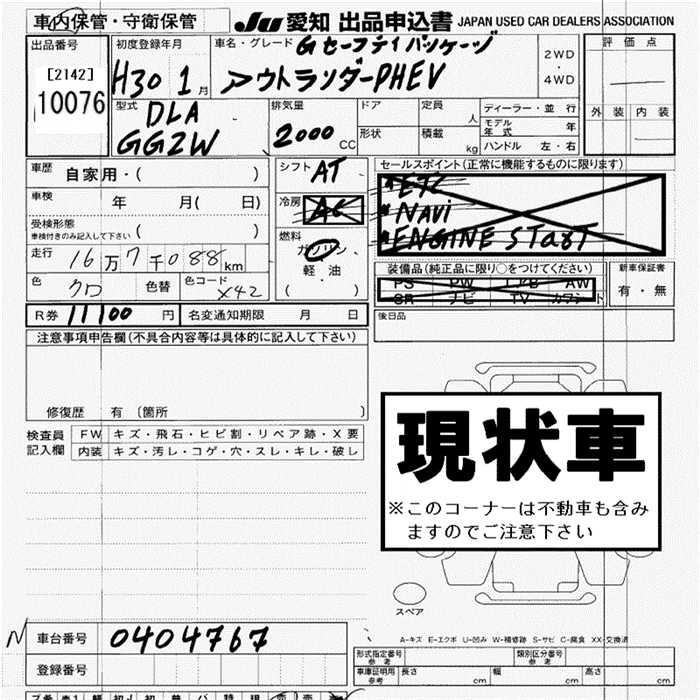 車内保管・守衛保管
JU 愛知 出品申込書 JAPAN USED CAR DEALERS ASSOCIATION
出品番号
[2142]
10076
初度登録年月
H30 1月
車名・グレード Gセーフティパッケージ
アウトランダーPHEV
2WD
・
4WD
評価点
外装 内装
型式 DLA
GG2W
排気量
2000 CC
ドア
形状
定員 人
積載 kg
ディーラー・並行
モデル年式 年
ハンドル 左・右
車歴 自家用・( )
車検 年 月( 日)
受検形態
車検付きのみ記入して下さい ( )
走行 16万7千088km
色 クロ 色替 色コード X42
シフト AT
冷房 AC
燃料
ガソリン
軽・油
( )
セールスポイント(正常に機能するものに限ります)
ETC
NAVi
ENGINE STarT
装備品(純正品に限り○をつけてください)
PS PW エアB AW
SR ナビ TV カワシート
新車保証書
有・無
R券 11100 円 名変通知期限 月 日
後日品
注意事項申告欄(不具合内容等は具体的に記入して下さい)
修復歴 有 〔箇所 〕
検査員記入欄
FW キズ・飛石・ヒビ割・リペア跡・X要
内装 キズ・汚レ・コゲ・穴・スレ・キレ・破レ
現状車
※このコーナーは不動車も含み
ますのでご注意下さい
スペア
A-キズ E-エクボ U-凹み W-補修跡 S-サビ C-腐食 XX-交換済
N 車台番号 0404767
登録番号
形式指定番号 参考
類別区分番号 参考
車庫証明用 参考 長さ cm 幅 cm 高さ cm